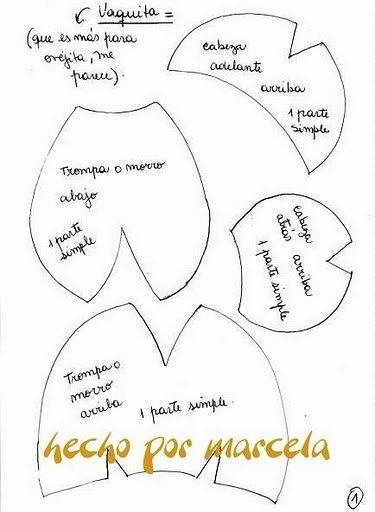 Vaquita =
(que es más para
ovejita, me
parece).
cabeza
adelante
arriba
1 parte
simple
Trompa o morro
abajo
1 parte
simple
cabeza
atrás arriba
1 parte simple
Trompa o
morro
arriba
1 parte simple.
hecho por marcela
1